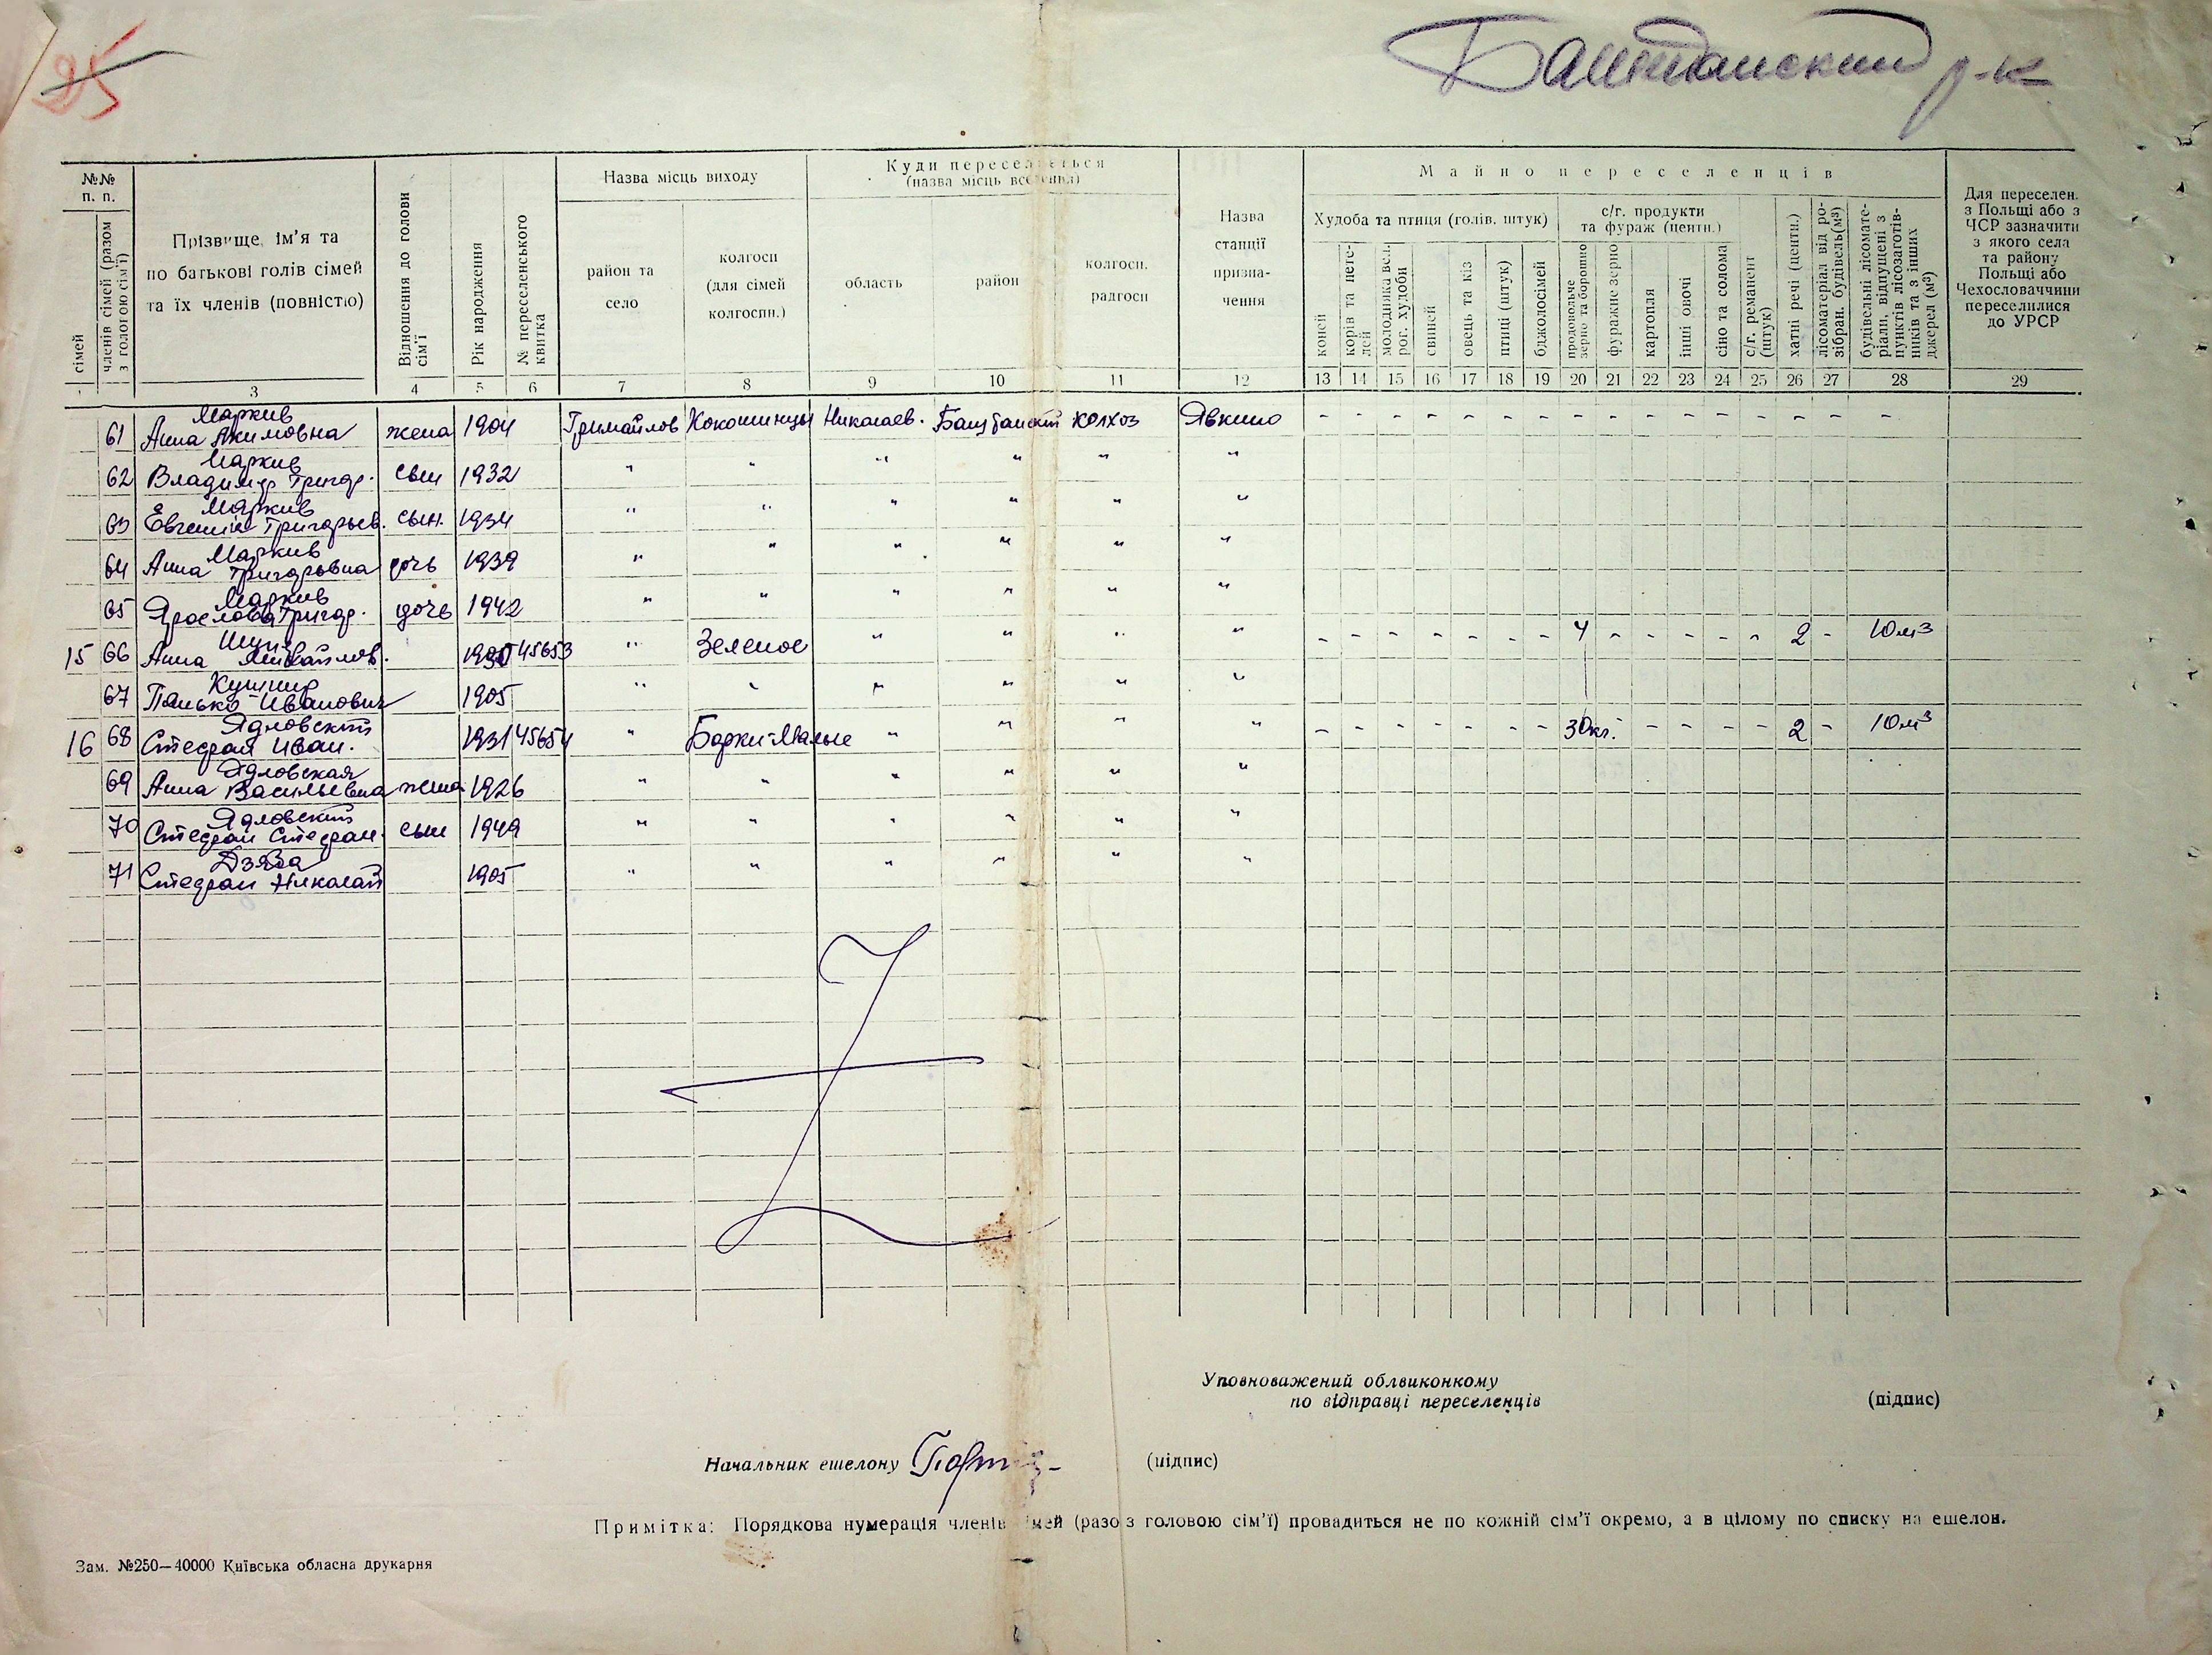 25
Баштанский р-к
№№ п. п.
сімей
членів сімей (разом з головою сім'ї)
Прізвище, ім'я та по батькові голів сімей та їх членів (повністю)
Відношення до голови сім'ї
Рік народження
№ переселенського квитка
Назва місць виходу
район та село
колгосп (для сімей колгоспн.)
Куди переселяється (назва місць вселення)
область
район
колгосп, радгосп
Назва станції призначення
Майно переселенців
Худоба та птиця (голів, штук)
коней
корів та нете- лей
молодняка вел. рог. худоби
свиней
овець та кіз
птиці (штук)
бджолосімей
с/г. продукти та фураж (центн.)
продовольче зерно та борошно
фуражне зерно
картопля
інші овочі
сіно та солома
с/г. реманент (штук)
хатні речі (центн.)
лісоматеріал від ро- зібран. будівель (м³)
будівельні лісомате- ріали, відпущені з пунктів лісозаготів- ників та з інших джерел (м³)
Для переселен. з Польщі або з ЧСР зазначити з якого села та району Польщі або Чехословаччини переселилися до УРСР
3 4 5 6 7 8 9 10 11 12 13 14 15 16 17 18 19 20 21 22 23 24 25 26 27 28 29
61 Маркив Анна Якимовна жена 1904 Гримайлов Кокошинцы Николаев. Баштанский колхоз Явкино - - - - - - - - - - - - - - - -
62 Маркив Владимир Григор. сын 1932 " " " " " "
63 Маркив Евгений Григорьев. сын. 1934 " " " " " "
64 Маркив Анна Григорьвна дочь 1939 " " " " " "
65 Маркив Ярослова Григор. дочь 1942 " " " " " "
15 66 Анна Михайлов. 45653 " Зеленое " " " " - - - - - - - 4 - - - - - 2 - 10 м3
67 Кушнир Панько Иванович 1905 " " " " " "
16 68 Ядловский Стефан Иван. 1931 45654 " Борки-Малые " " " " - - - - - - - 30кг. - - - - - 2 - 10м3
69 Ядловская Анна Васильевна жена 1926 " " " " " "
70 Ядловский Стефан Стефан. сын 1949 " " " " " "
71 Дзяба Стефан Николай 1905 " " " " " "
Уповноважений облвиконкому
по відправці переселенців (підпис)
Начальник ешелону (підпис)
Примітка: Порядкова нумерація членів сімей (разо з головою сім'ї) провадиться не по кожній сім'ї окремо, а в цілому по списку на ешелон.
Зам. №250—40000 Київська обласна друкарня